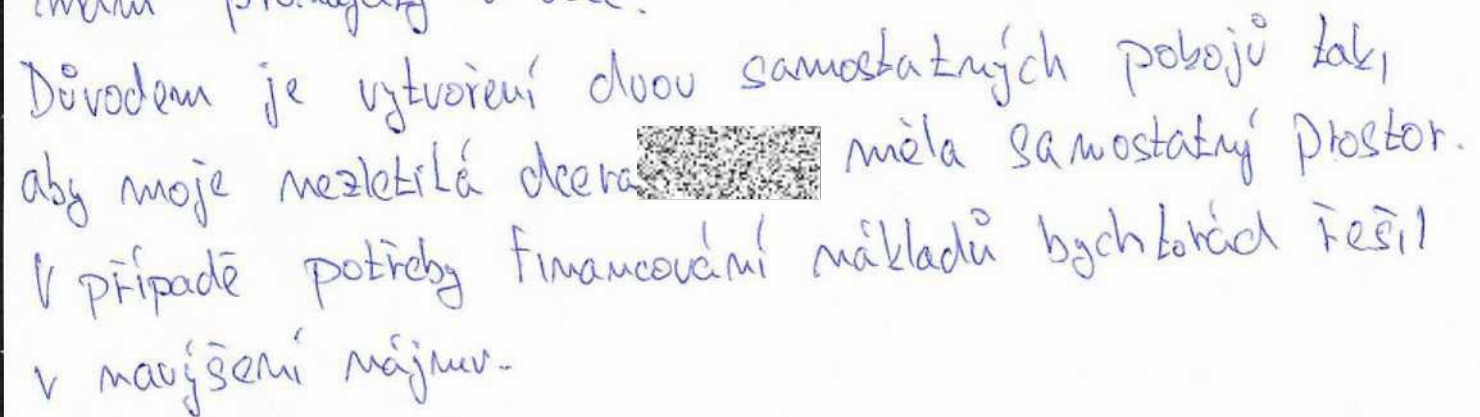 Důvodem je vytvoření dvou samostatných pokojů tak,
aby moje nezletilá dcera měla samostatný prostor.
V případě potřeby financování nákladů bych to rád řešil
v navýšení nájmu.